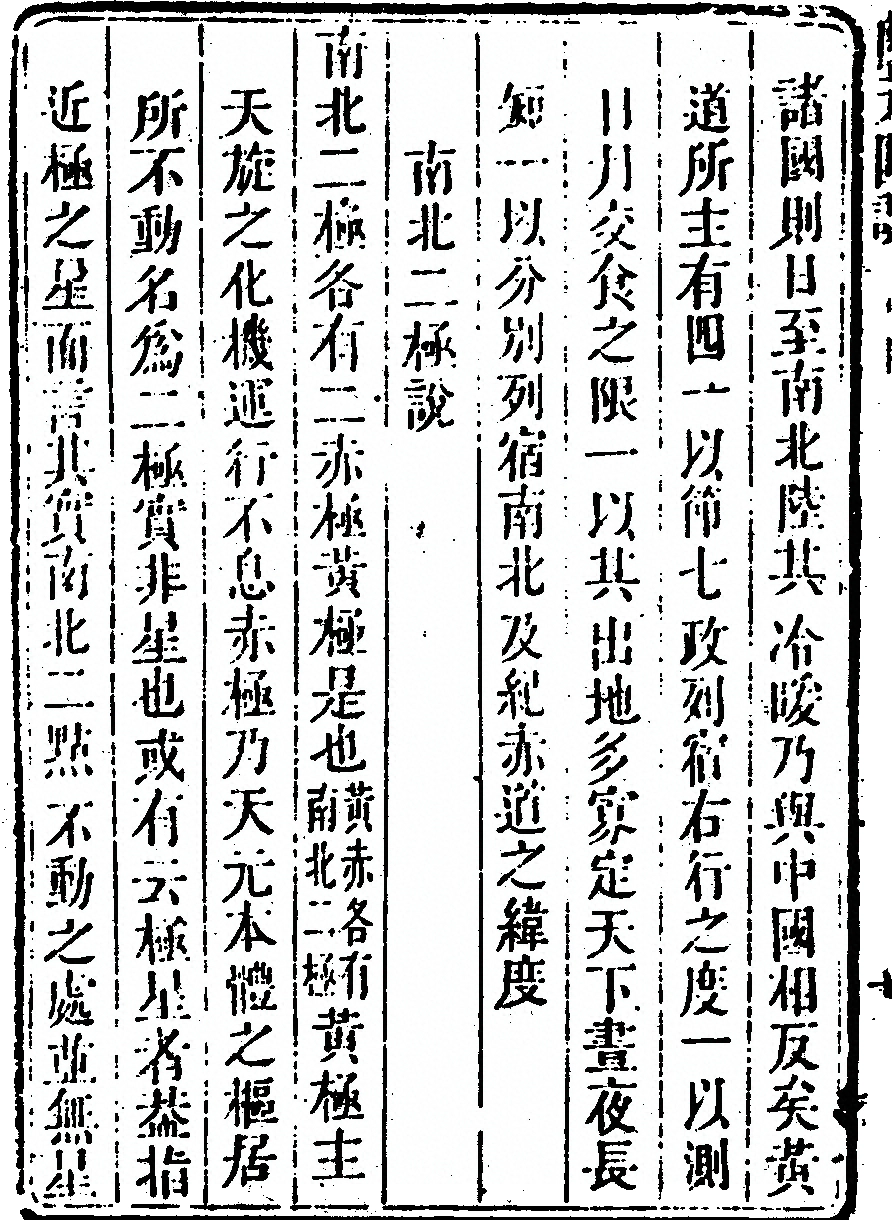 諸國則日至南北陸共冷暖乃與中國相反矣黃
道所主有四一以節七政列宿右行之度一以測
日月交食之限一以其出地多寡定天下晝夜長
短一以分別列宿南北及紀赤道之緯度
南北二極說
南北二極各有二赤極黃極是也黃赤各有南北二極黃極主
天旋之化機運行不息赤極乃天元本體之樞居
所不動名爲二極實非星也或有云極星者葢指
近極之星而言其實南北二點不動之處並無星